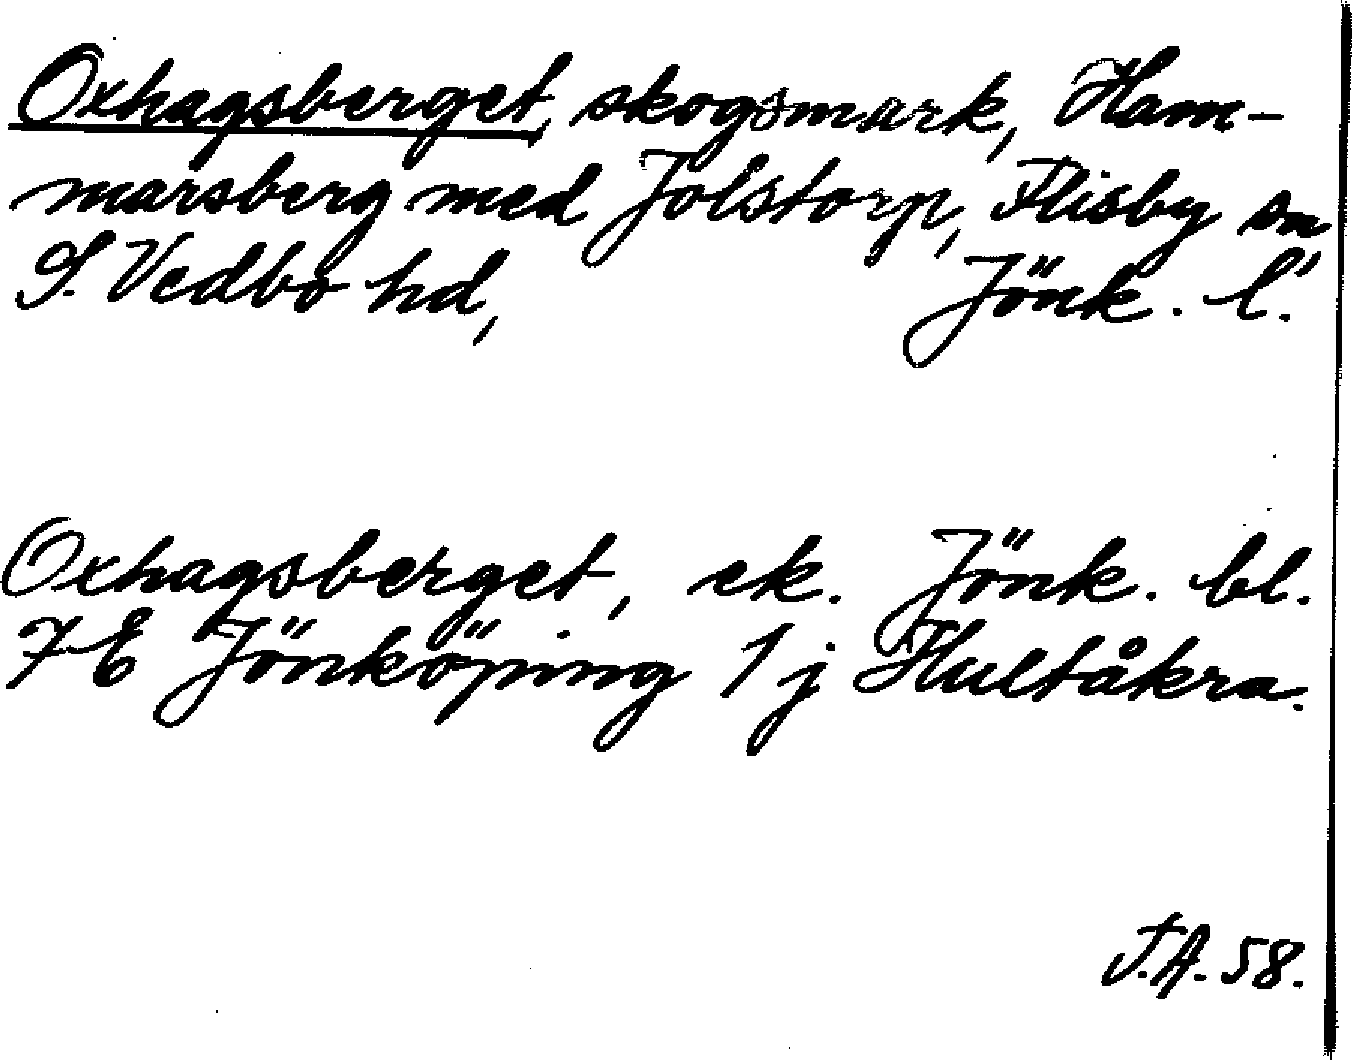 Oxhagsberget, skogsmark, Ham-
marsberg med Jolstorp, Flisby sn
S. Vedbo hd, Jönk. l.
Oxhagsberget, ek. Jönk. bl.
7 E Jönköping 1 j Hultåkra.
T.A. 58.